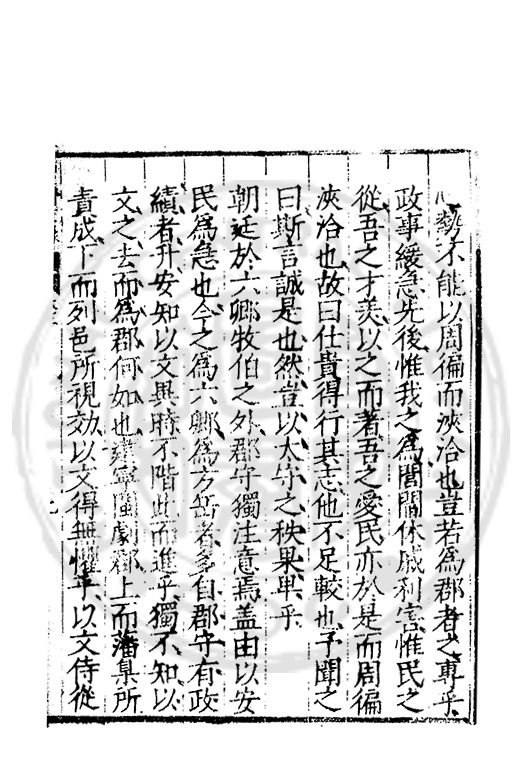 勢不能以周徧而浹洽也豈若為郡者之專乎
政事緩急先後惟我之為閭閻休戚利害惟民之
從吾之才羙以之而著吾之愛民亦於是而周徧
浹洽也故曰仕貴得行其志他不足較也予聞之
曰斯言誠是也然豈以太守之秩果卑乎
朝廷於六卿牧伯之外郡守獨注意焉盖由以安
民為急也今之為六卿為方岳者多自郡守有政
績者升安知以文異時不階此而進乎獨不知以
文之去而為郡何如也建寧閩劇郡上而藩臬所
責成下而列邑所視効以文得無懼乎以文侍從